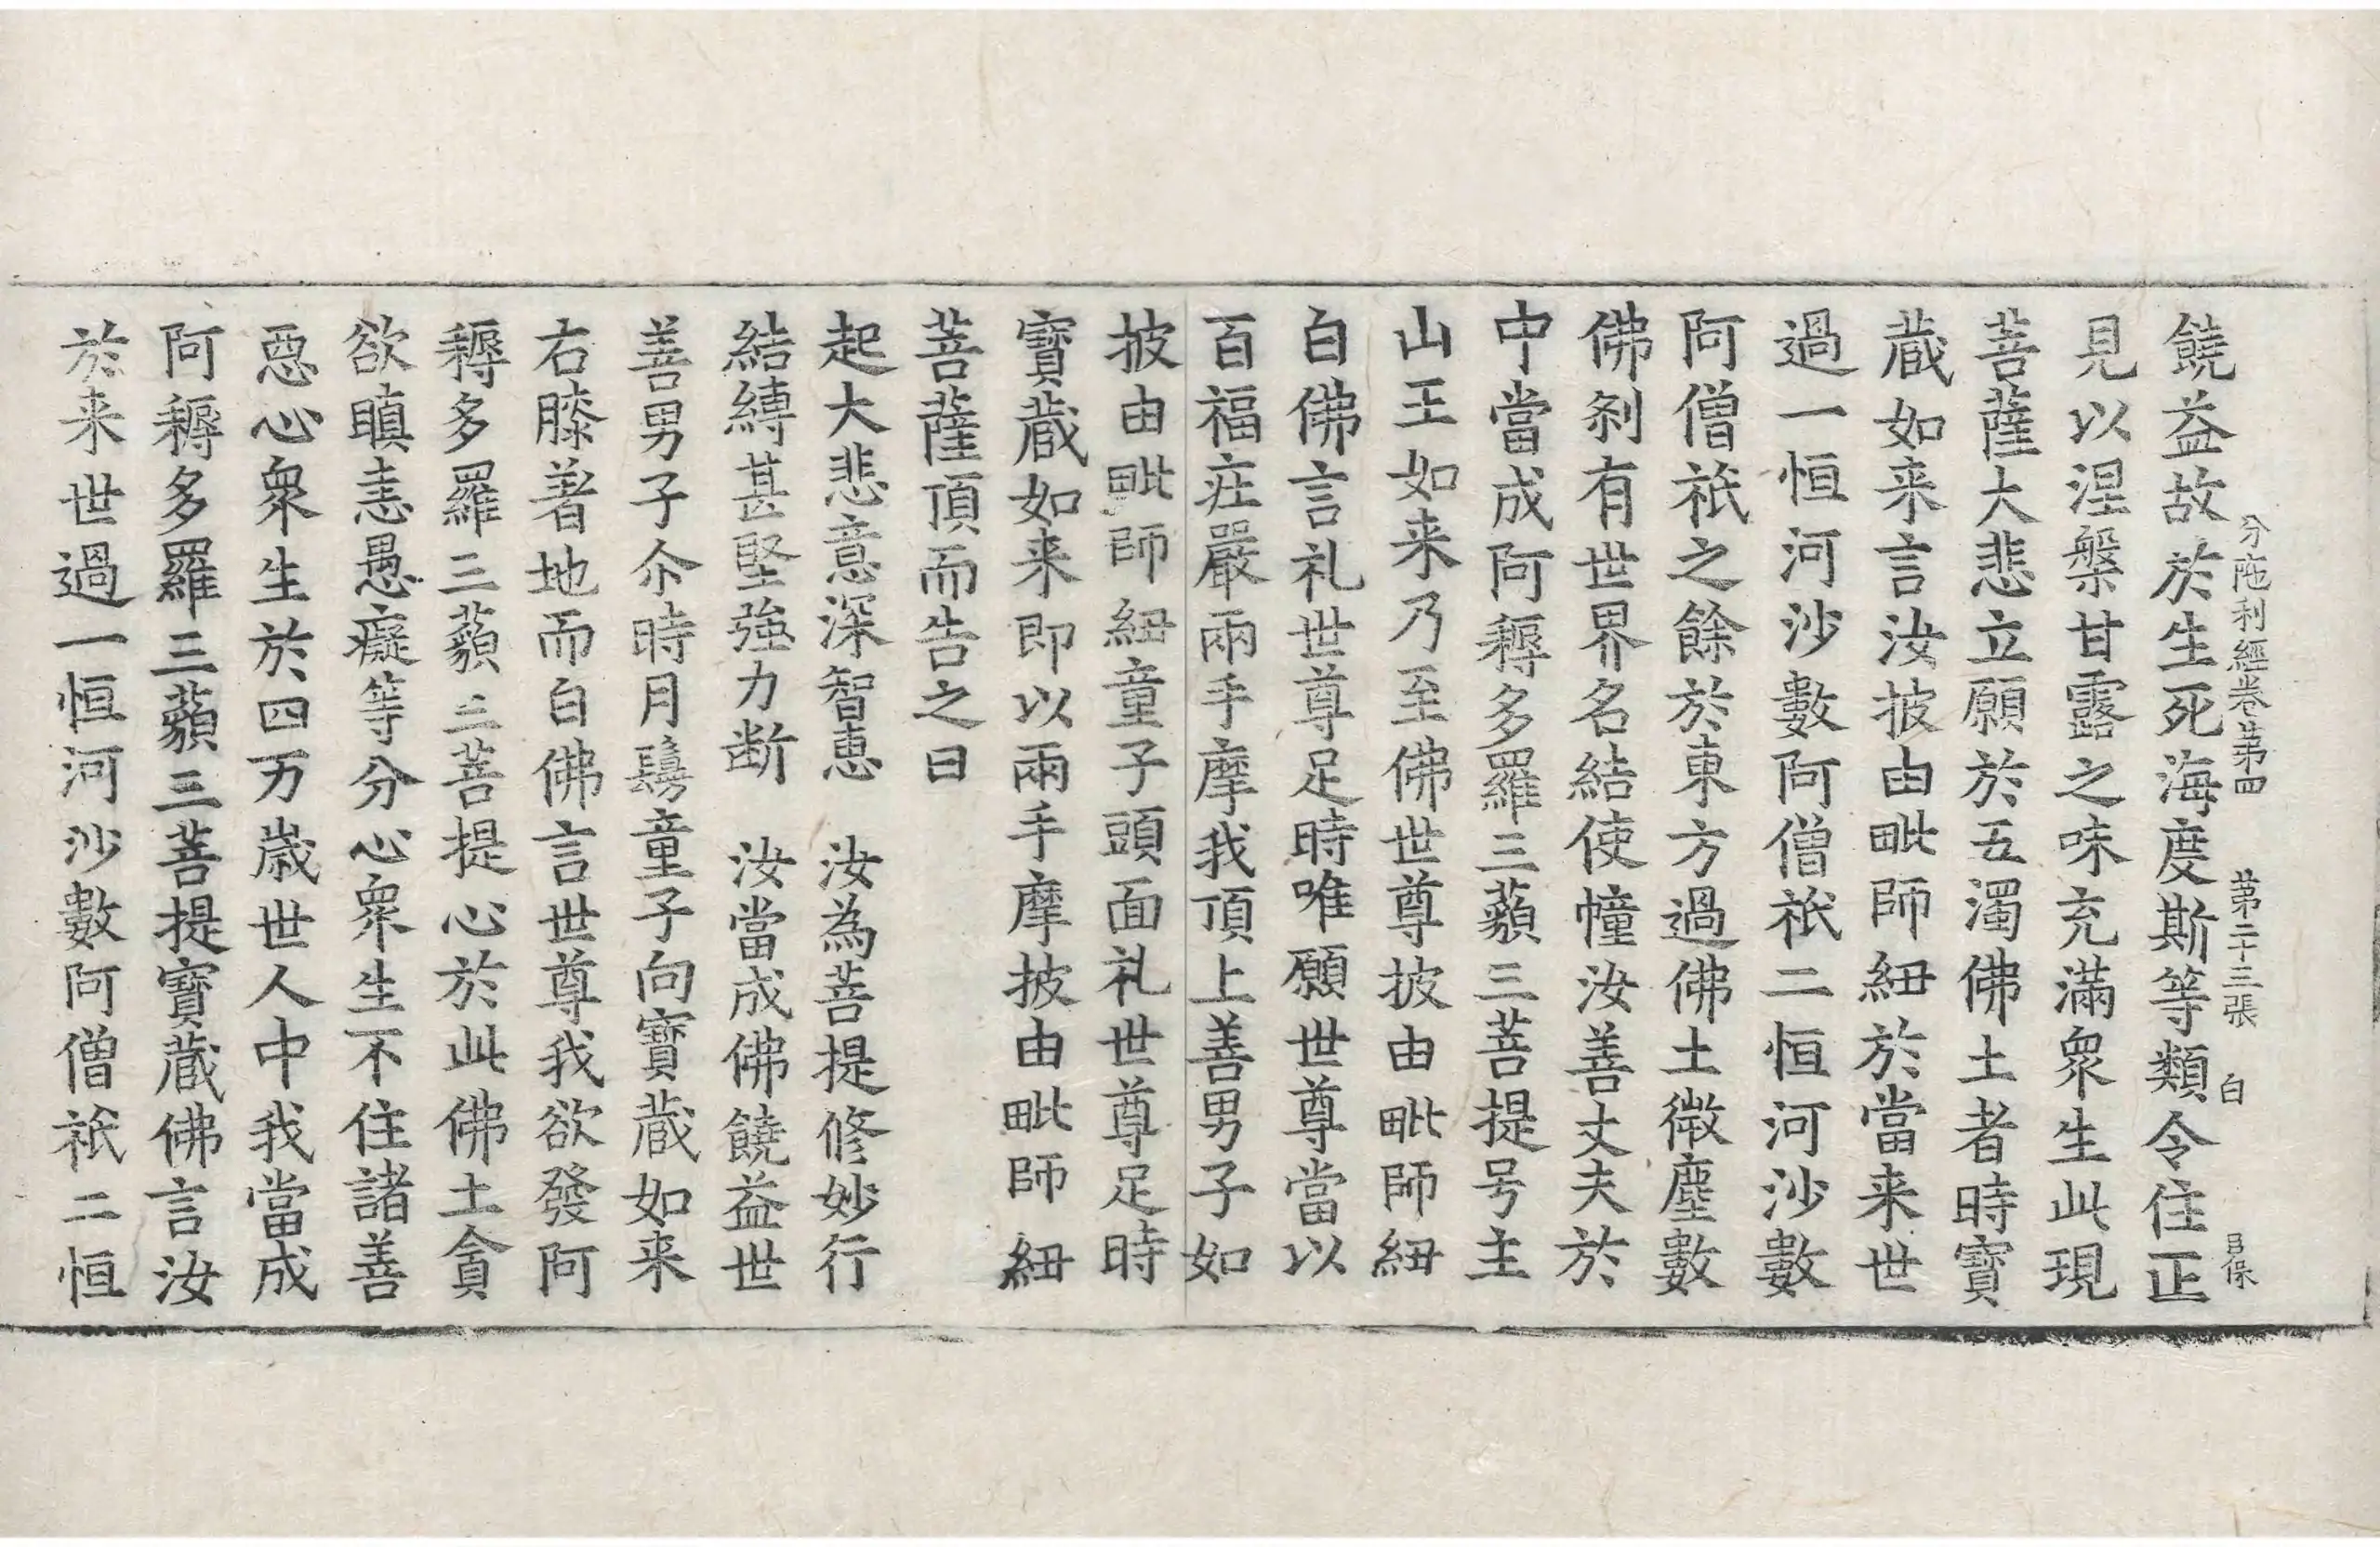 饒益故於生死海度斯等類令住正
分陁利經卷第四 第二十三張 白
見以涅槃甘露之味充滿衆生此現
菩薩大悲立願於五濁佛土者時寶
蔵如来言汝披由毗師紐於當来世
過一恒河沙數阿僧祇二恒河沙數
阿僧祇之餘於東方過佛土微塵數
佛刹有世界名結使幢汝善丈夫於
中當成阿耨多羅三藐三菩提号主
山王如来乃至佛世尊披由毗師紐
白佛言礼世尊足時唯願世尊當以
百福庄嚴兩手摩我頂上善男子如
披由毗師紐童子頭面礼世尊足時
寶蔵如来即以兩手摩披由毗師紐
菩薩頂而告之曰
起大悲意深智恵 汝為菩提修妙行
結縛甚堅強力断 汝當成佛饒益世
善男子尒時月鬘童子向寶蔵如来
右膝著地而白佛言世尊我欲發阿
耨多羅三藐三菩提心於此佛土貪
欲瞋恚愚癡等分心衆生不住諸善
惡心衆生於四万歳世人中我當成
阿耨多羅三藐三菩提寶蔵佛言汝
於来世過一恒河沙數阿僧祇二恒